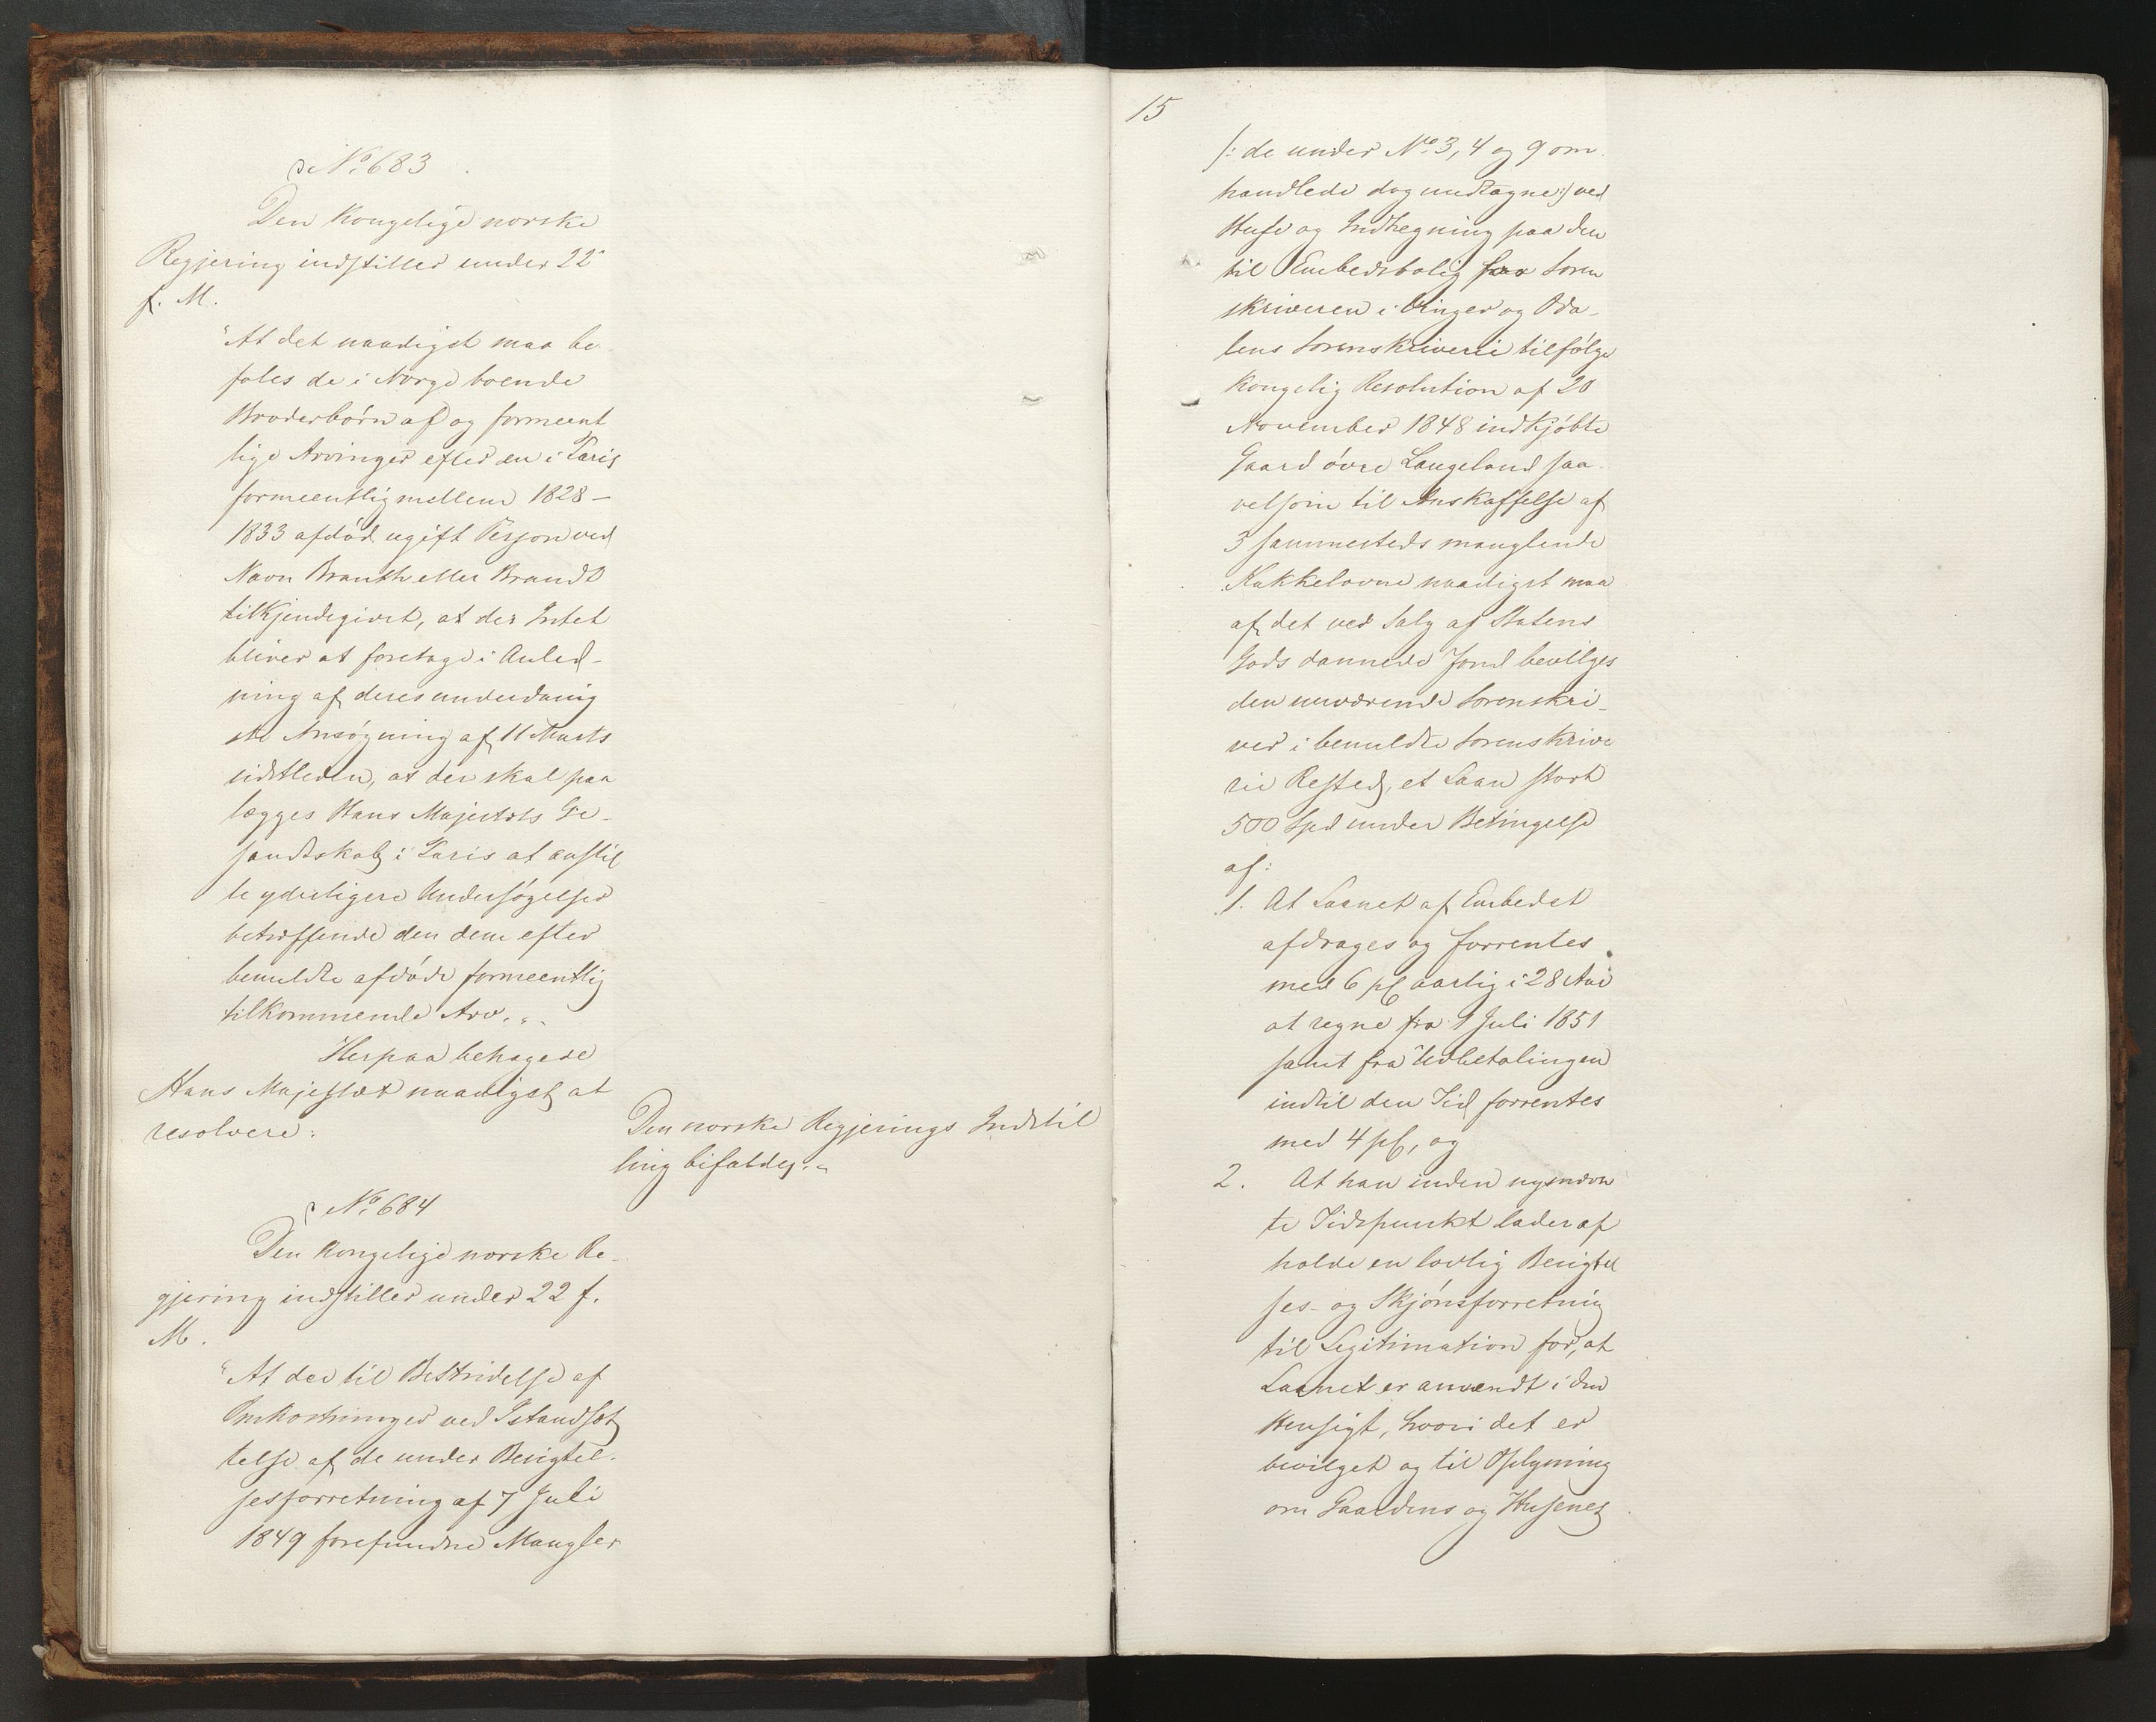 No. 683
Den Kongelige norske
Regjering indstiller under 22
f. M.
"At det naadigst maa be-
fales de i Norge boende
Broderbörn af og formeent
lige Arvinger efter en i Paris
formeentlig mellem 1828 –
1833 afdöd ugift Person ved
Navn Branth eller Brandt
tilkjendegivet, at der Intet
bliver at foretage i Anled-
ning af deres underdanig
ste Ansögning af 11 Marts
sidstleden, at der skal paa
lægges Hans Majestæts Ge-
sandtskab i Paris at anstil
le yderligere Undersögelser
betræffende den dem efter
bemeldte afdöde formeentlig
tilkommende Arv."
Herpaa behagede
Hans Majestæt naadigst at
resolvere:
Den norske Regjerings Indstil
ling bifaldes.
No. 684
Den Kongelige norske Re-
gjering indstiller under 22 f.
M.
"At der til Bestridelse af
Omkostninger ved Istandsæt
telse af de under Besigtel-
sesforretning af 7 Juli
1849 forefundne Mangler
15
/: de under No. 3, 4 og 9 om-
handlede dog undtagne :/ ved
Huse og Indhegning paa den
til Embedsbolig for Soren
skriveren i Vinger og Oda-
lens Sorenskriverie tilfölge
Kongelig Resolution af 20
November 1848 indkjöbte
Gaard övre Langeland saa-
velsom til Anskaffelse af
3 sammesteds manglende
Kakkelovne naadigst maa
af det ved Salg af Statens
Gods dannede Fond bevilges
den nuværende Sorenskri-
ver i bemeldte Sorenskrive
rie Rested, et Laan stort
500 Spd under Betingelse
af:
1. At Laanet af Embedet
afdrages og forrentes
med 6 pC aarlig i 28 Aar
at regne fra 1 Juli 1851
samt fra Udbetalingen
indtil den Tid forrentes
med 4 pC, og
2. At han inden nysnævn
te Tidspunkt lader af
holde en lovlig Besigtel
ses- og Skjönsforretning
til Legitimation for, at
Laanet er anvendt i den
Hensigt, hvori det er
bevilget og til Oplysning
om Gaardens og Husenes